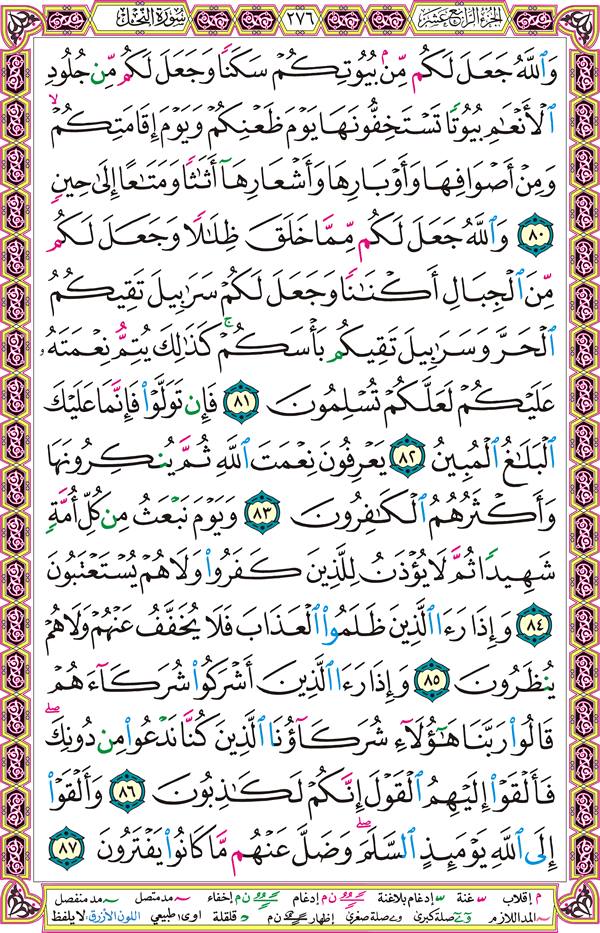 الجزء الرابع عشر ٢٧٦ سورة النحل
وَٱللَّهُ جَعَلَ لَكُم مِّنۢ بُيُوتِكُمْ سَكَنًا وَجَعَلَ لَكُم مِّن جُلُودِ
ٱلْأَنْعَٰمِ بُيُوتًا تَسْتَخِفُّونَهَا يَوْمَ ظَعْنِكُمْ وَيَوْمَ إِقَامَتِكُمْ ۙ
وَمِنْ أَصْوَافِهَا وَأَوْبَارِهَا وَأَشْعَارِهَآ أَثَٰثًا وَمَتَٰعًا إِلَىٰ حِينٍ
٨٠ وَٱللَّهُ جَعَلَ لَكُم مِّمَّا خَلَقَ ظِلَٰلًا وَجَعَلَ لَكُم
مِّنَ ٱلْجِبَالِ أَكْنَٰنًا وَجَعَلَ لَكُمْ سَرَٰبِيلَ تَقِيكُمُ
ٱلْحَرَّ وَسَرَٰبِيلَ تَقِيكُم بَأْسَكُمْ ۚ كَذَٰلِكَ يُتِمُّ نِعْمَتَهُۥ
عَلَيْكُمْ لَعَلَّكُمْ تُسْلِمُونَ ٨١ فَإِن تَوَلَّوْا۟ فَإِنَّمَا عَلَيْكَ
ٱلْبَلَٰغُ ٱلْمُبِينُ ٨٢ يَعْرِفُونَ نِعْمَتَ ٱللَّهِ ثُمَّ يُنكِرُونَهَا
وَأَكْثَرُهُمُ ٱلْكَٰفِرُونَ ٨٣ وَيَوْمَ نَبْعَثُ مِن كُلِّ أُمَّةٍ
شَهِيدًا ثُمَّ لَا يُؤْذَنُ لِلَّذِينَ كَفَرُوا۟ وَلَا هُمْ يُسْتَعْتَبُونَ
٨٤ وَإِذَا رَءَا ٱلَّذِينَ ظَلَمُوا۟ ٱلْعَذَابَ فَلَا يُخَفَّفُ عَنْهُمْ وَلَا هُمْ
يُنظَرُونَ ٨٥ وَإِذَا رَءَا ٱلَّذِينَ أَشْرَكُوا۟ شُرَكَآءَهُمْ
قَالُوا۟ رَبَّنَا هَٰٓؤُلَآءِ شُرَكَآؤُنَا ٱلَّذِينَ كُنَّا نَدْعُوا۟ مِن دُونِكَ ۖ
فَأَلْقَوْا۟ إِلَيْهِمُ ٱلْقَوْلَ إِنَّكُمْ لَكَٰذِبُونَ ٨٦ وَأَلْقَوْا۟
إِلَى ٱللَّهِ يَوْمَئِذٍ ٱلسَّلَمَ ۖ وَضَلَّ عَنْهُم مَّا كَانُوا۟ يَفْتَرُونَ ٨٧
م إقلاب غنة إدغام بلاغنة ن م إدغام ن م إخفاء مد متصل مد منفصل
المد اللازم صلة كبرى صلة صغرى إظهار ن م قلقلة ا و ى طبيعي اللون الأزرق: لا يلفظ